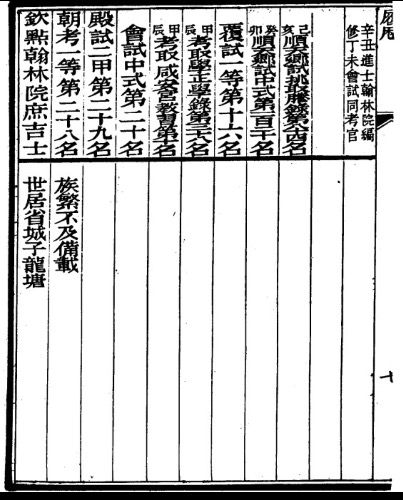 辛丑進士翰林院編
修丁未會試同考官
己亥順天鄉試挑取謄錄第六四名
癸卯順天鄉試中式第二百二十名
覆試一等第十六名
甲辰考取學正學錄第三十六名
甲辰考取咸安宮教習第十名
會試中式第二十名
殿試二甲第二十九名
朝考一等第二十八名
欽點翰林院庶吉士
族繁不及備載
世居省城子龍塘